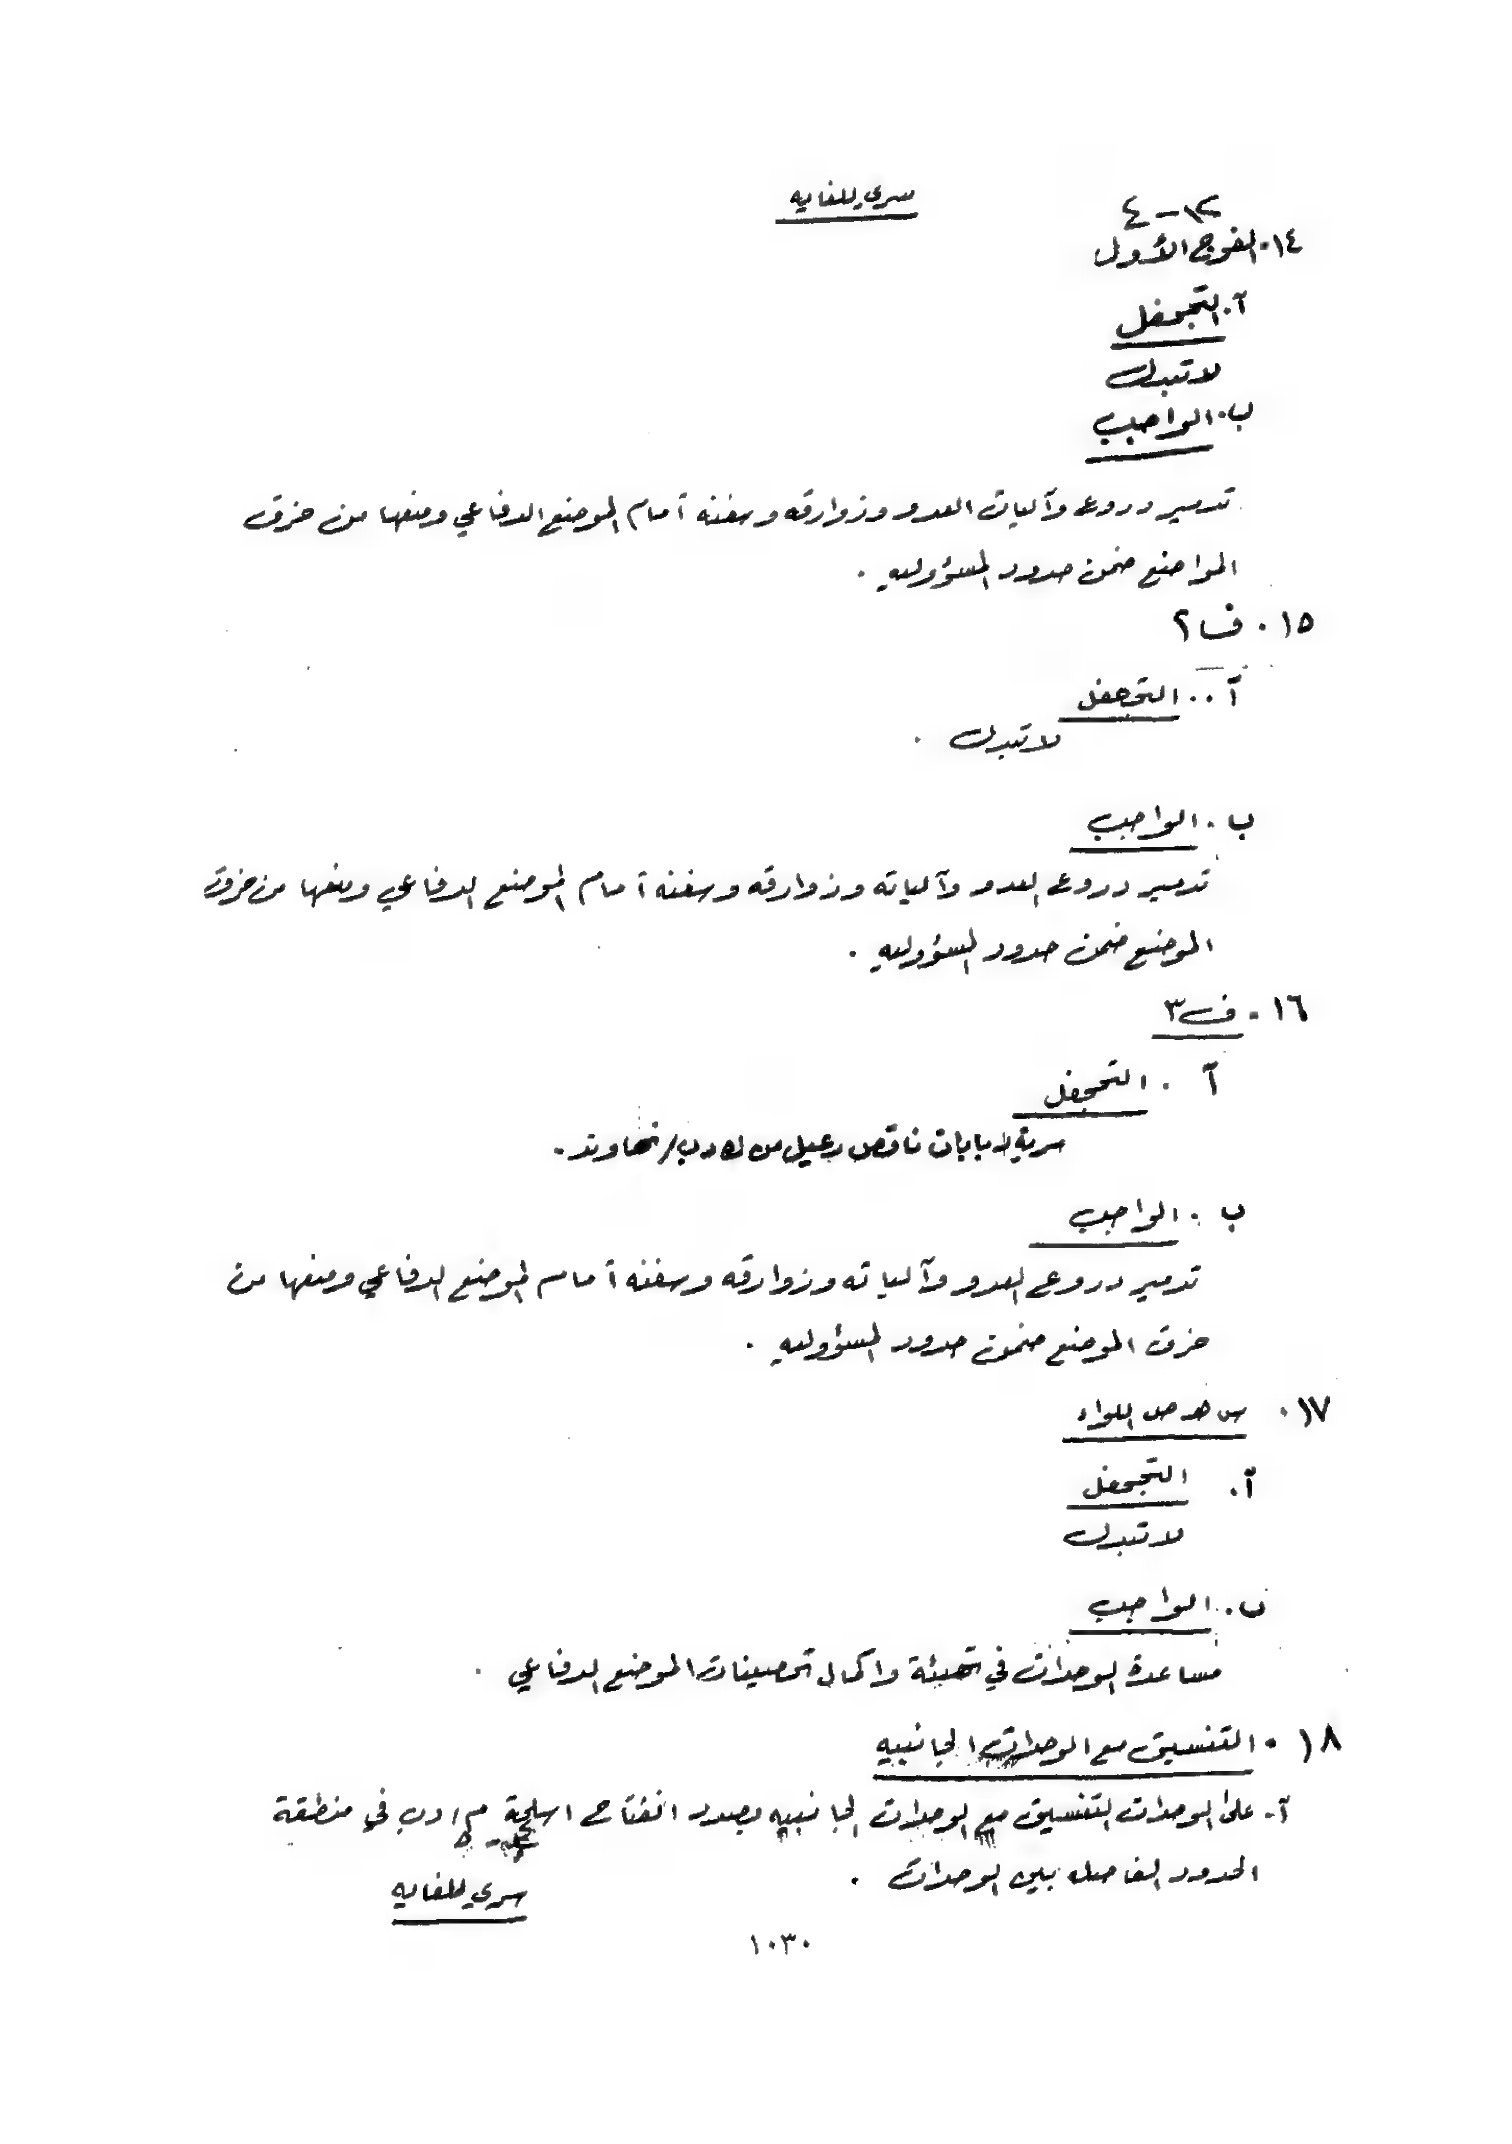 سري للغايه
٤-١٢
١٤. الفوج الأول
آ. التجحفل
لا تبدل
ب. الواجب
تدمير دروع وآليات العدو وزوارقه وسفنه أمام الموضع الدفاعي ومنعها من خرق
المواضع ضمن حدود المسؤوليه .
١٥. ف ٢
آ.. التجحفل
لا تبدل .
ب. الواجب
تدمير دروع العدو وآلياته وزوارقه وسفنه أمام الموضع الدفاعي ومنعها من خرق
الموضع ضمن حدود المسؤوليه .
١٦. ف ٣
آ . التجحفل
سرية دبابات ناقص رعيل من ك دب/نهاوند .
ب . الواجب
تدمير دروع العدو وآلياته وزوارقه وسفنه أمام الموضع الدفاعي ومنعها من
خرق الموضع ضمن حدود المسؤوليه .
١٧. س هـ ص اللواء
آ. التجحفل
لا تبدل
ب. الواجب
مساعدة الوحدات في تهيئة واكمال تحصينات الموضع الدفاعي .
١٨. التنسيق مع الوحدات الجانبيه
آ- على الوحدات التنسيق مع الوحدات الجانبيه بصدد انفتاح اسلحة م/دب في منطقة
الحدود الفاصله بين الوحدات .
سري للغايه
١٠٣٠